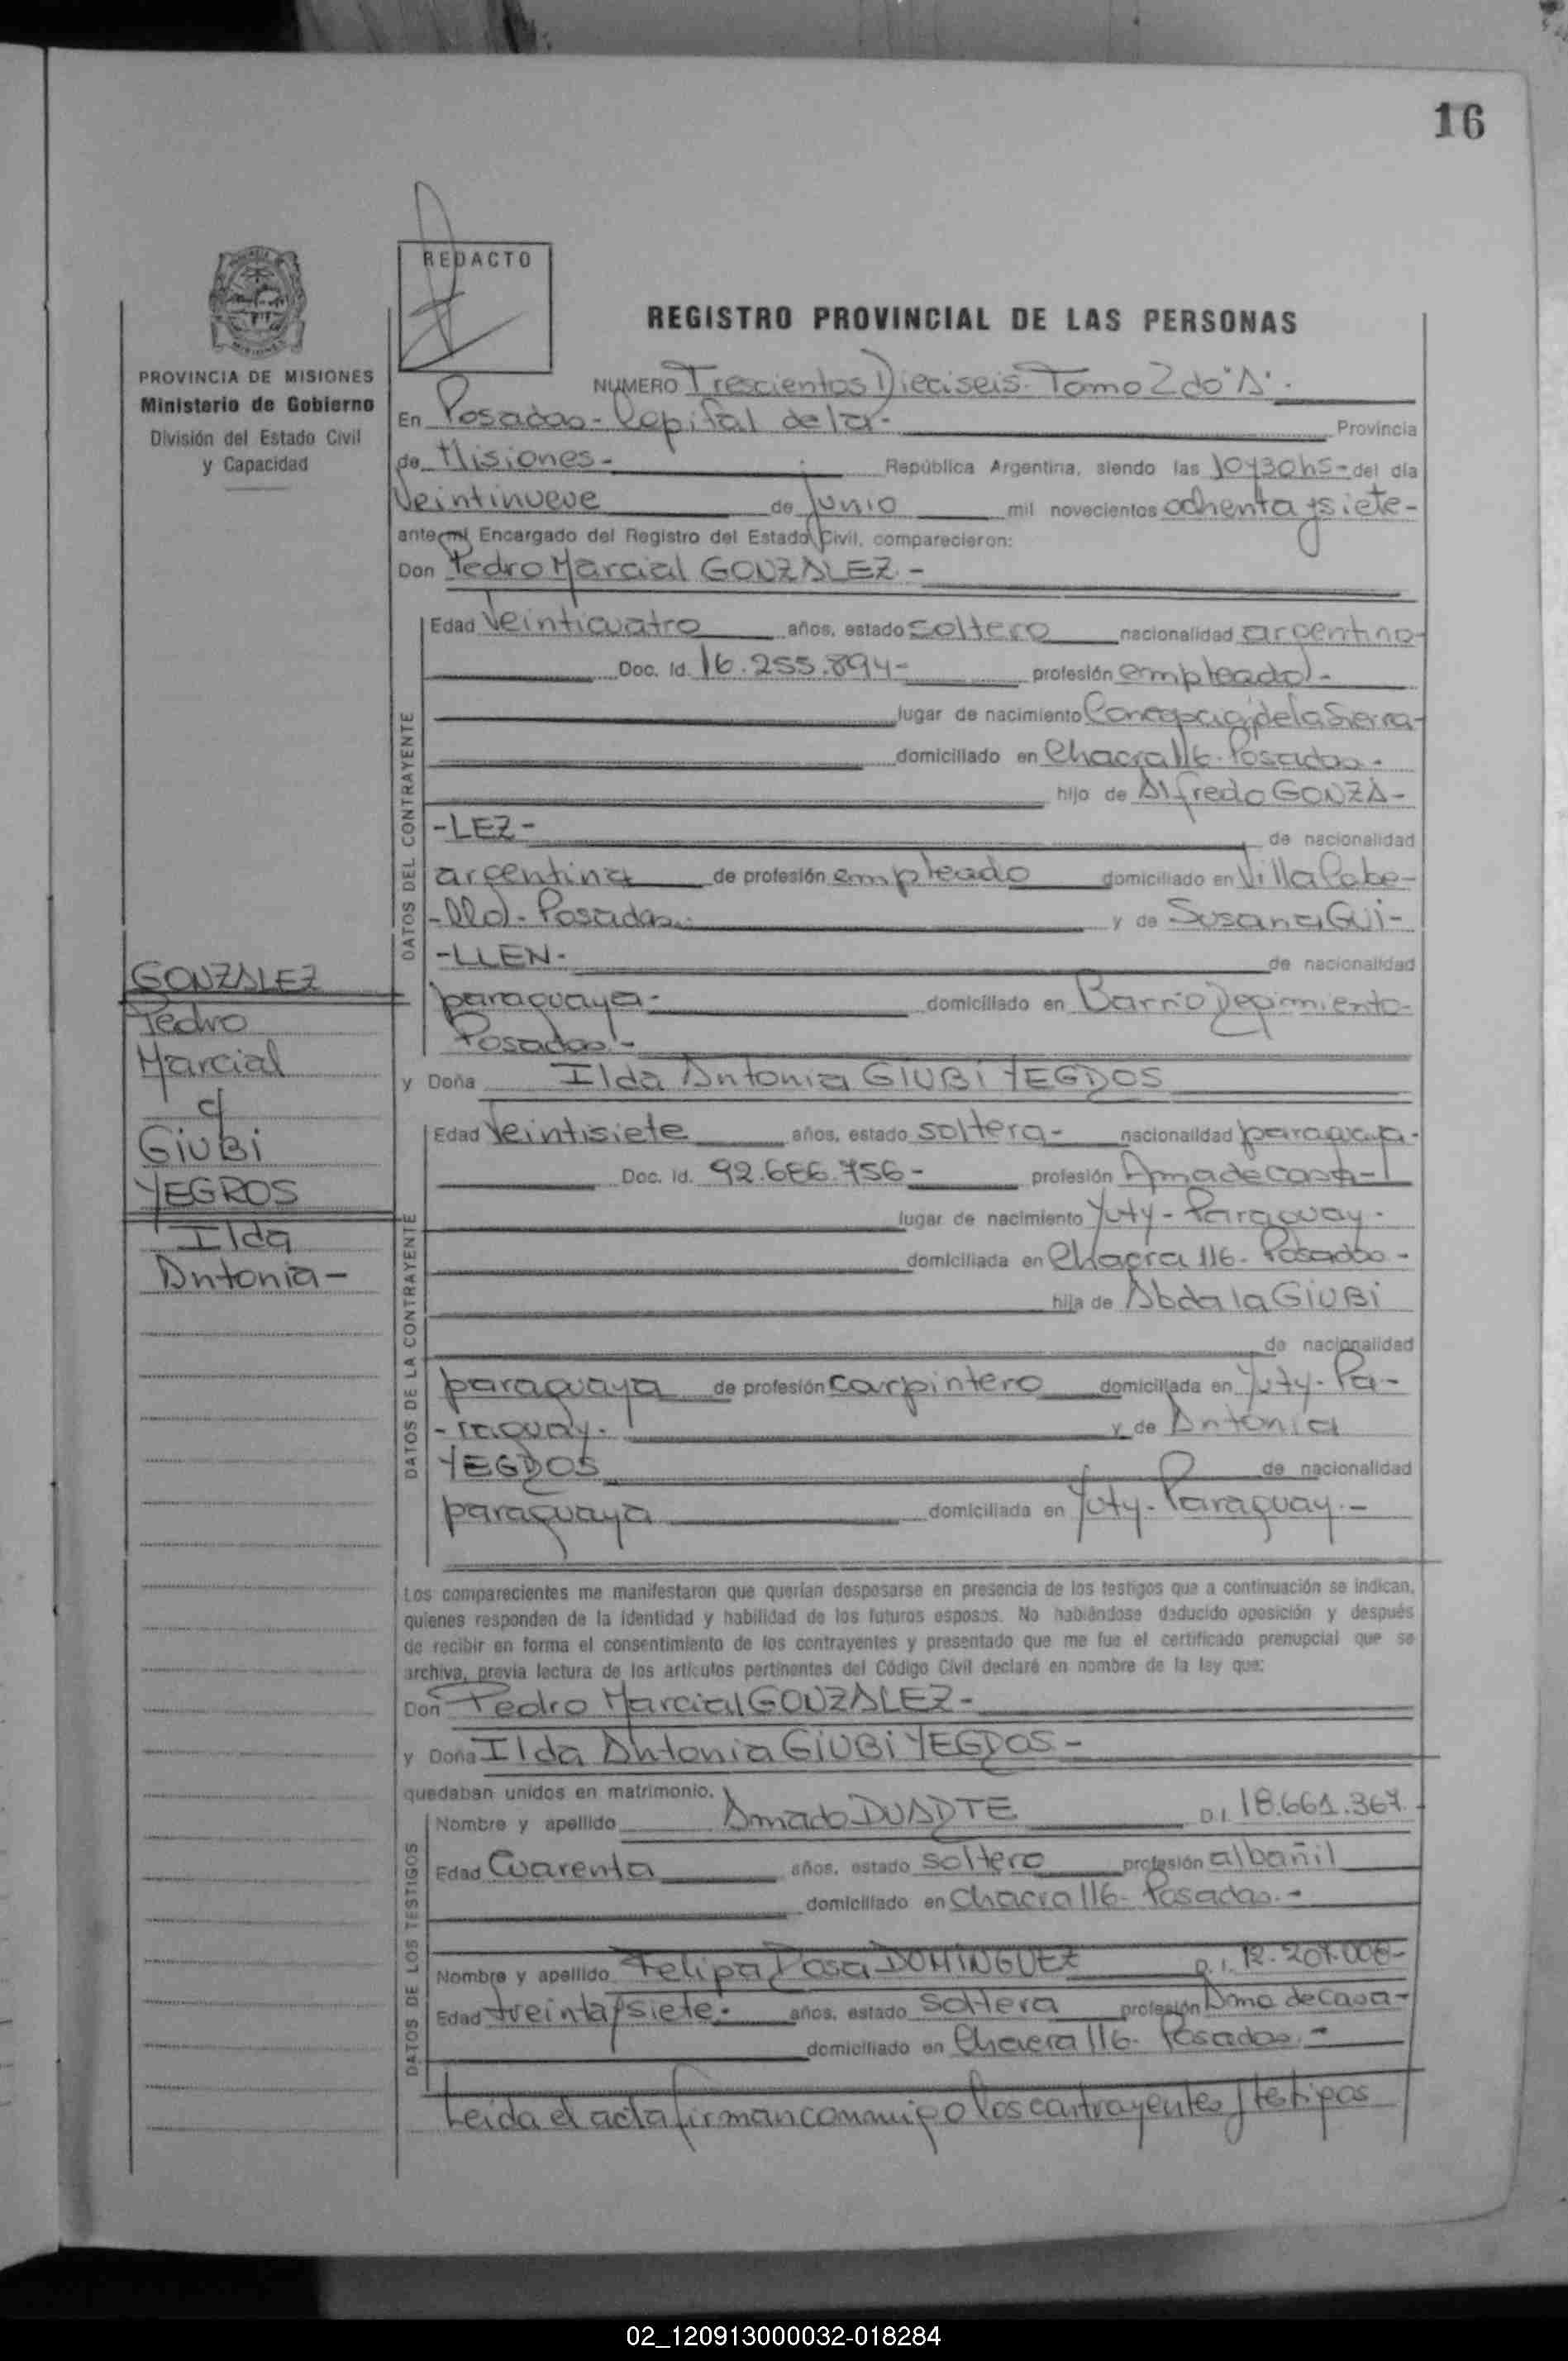 16
REDACTO
REGISTRO PROVINCIAL DE LAS PERSONAS
PROVINCIA DE MISIONES
Ministerio de Gobierno
División del Estado Civil
y Capacidad
NUMERO Trescientos Dieciseis- Tomo 2do "A".
En Posadas- Capital de la- Provincia
de Misiones- República Argentina, siendo las 10y30hs- del día
Veintinueve de Junio mil novecientos ochenta y siete-
ante mi Encargado del Registro del Estado Civil, comparecieron:
Don Pedro Marcial GONZALEZ-
Edad Veinticuatro años, estado soltero nacionalidad argentino-
Doc. Id. 16.255.894- profesión empleado-
lugar de nacimiento Concepción de la Sierra-
domiciliado en Chacra 116- Posadas-
hijo de Alfredo GONZA-
-LEZ- de nacionalidad
argentina de profesión empleado domiciliado en Villa Cabe-
-llo- Posadas- y de Susana GUI-
-LLEN- de nacionalidad
paraguaya- domiciliado en Barrio Regimiento-
Posadas-
y Doña Ilda Antonia GIUBI YEGROS
Edad Veintisiete años, estado soltera- nacionalidad paraguaya-
Doc. Id. 92.686.756- profesión Ama de casa-
lugar de nacimiento Yuty- Paraguay-
domiciliada en Chacra 116- Posadas-
hija de Abdala GIUBI
de nacionalidad
paraguaya de profesión carpintero domiciliada en Yuty- Pa-
-raguay- y de Antonia
YEGROS de nacionalidad
paraguaya domiciliada en Yuty- Paraguay.-
GONZALEZ
Pedro
Marcial
c/
GIUBI
YEGROS
Ilda
Antonia-
DATOS DEL CONTRAYENTE
DATOS DE LA CONTRAYENTE
Los comparecientes me manifestaron que querían desposarse en presencia de los testigos que a continuación se indican,
quienes responden de la identidad y habilidad de los futuros esposos. No habiéndose deducido oposición y después
de recibir en forma el consentimiento de los contrayentes y presentado que me fue el certificado prenupcial que se
archiva, previa lectura de los artículos pertinentes del Código Civil declaré en nombre de la ley que:
Don Pedro Marcial GONZALEZ-
y Doña Ilda Antonia GIUBI YEGROS-
quedaban unidos en matrimonio.
DATOS DE LOS TESTIGOS
Nombre y apellido Amado DUARTE D.I. 18.661.367.
Edad Cuarenta años, estado soltero profesión albañil
domiciliado en Chacra 116- Posadas.-
Nombre y apellido Felipa Rosa DOMINGUEZ D.I. 12.207.008-
Edad treinta y siete- años, estado soltera profesión Ama de casa-
domiciliado en Chacra 116- Posadas.-
Leida el acta firman conmigo los contrayentes y testigos
02_120913000032-018284